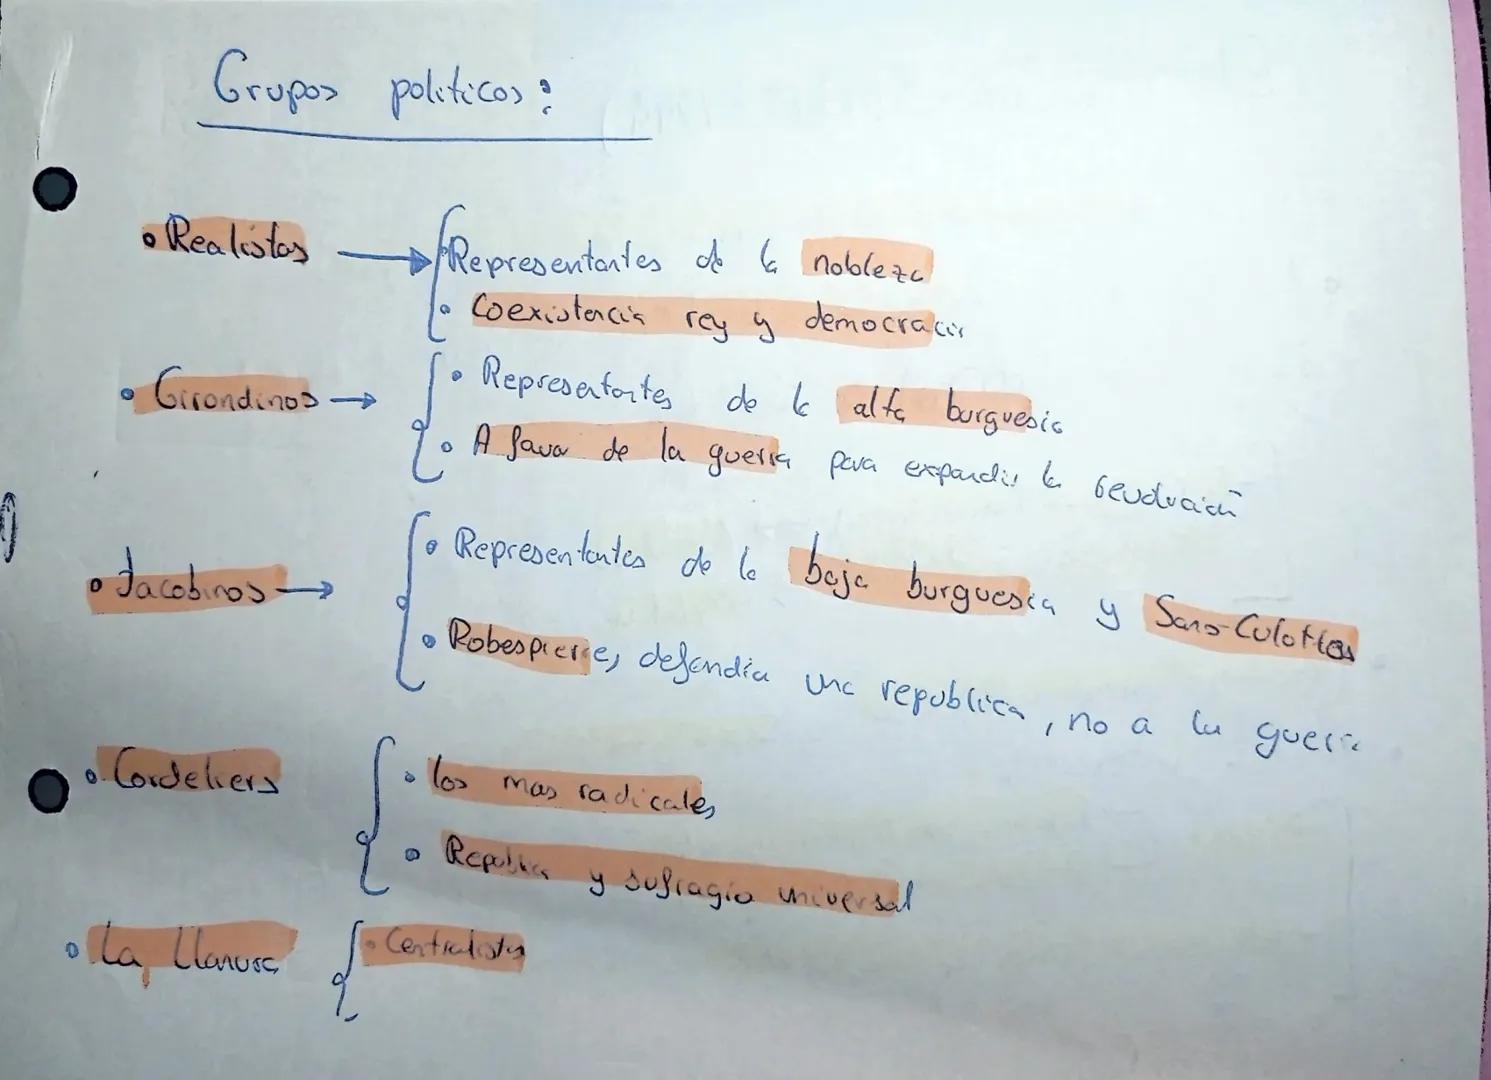 Grupos politicos:
• Realistas → Representantes de la nobleza
• Coexistencia rey y democracia
• Girondinos → • Representantes de la alta burguesia
• A favor de la guerra para expandir la revolución
• Jacobinos → • Representantes de la baja burguesia y Sans-Culottes
• Robespierre, defendia una republica, no a la guerra
• Cordeliers • los mas radicales
• Republica y sufragio universal
• La Llanura • Centralistas